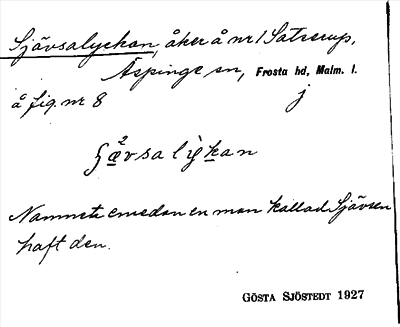 Sjävsalyckan, åker å nr 1 Satserup,
Äspinge sn, Frosta hd, Malm. l.
å fig. nr 8 j
ʃævsalykan
Namnet emedan en man kallad Sjävsen
haft den.
GÖSTA SJÖSTEDT 1927